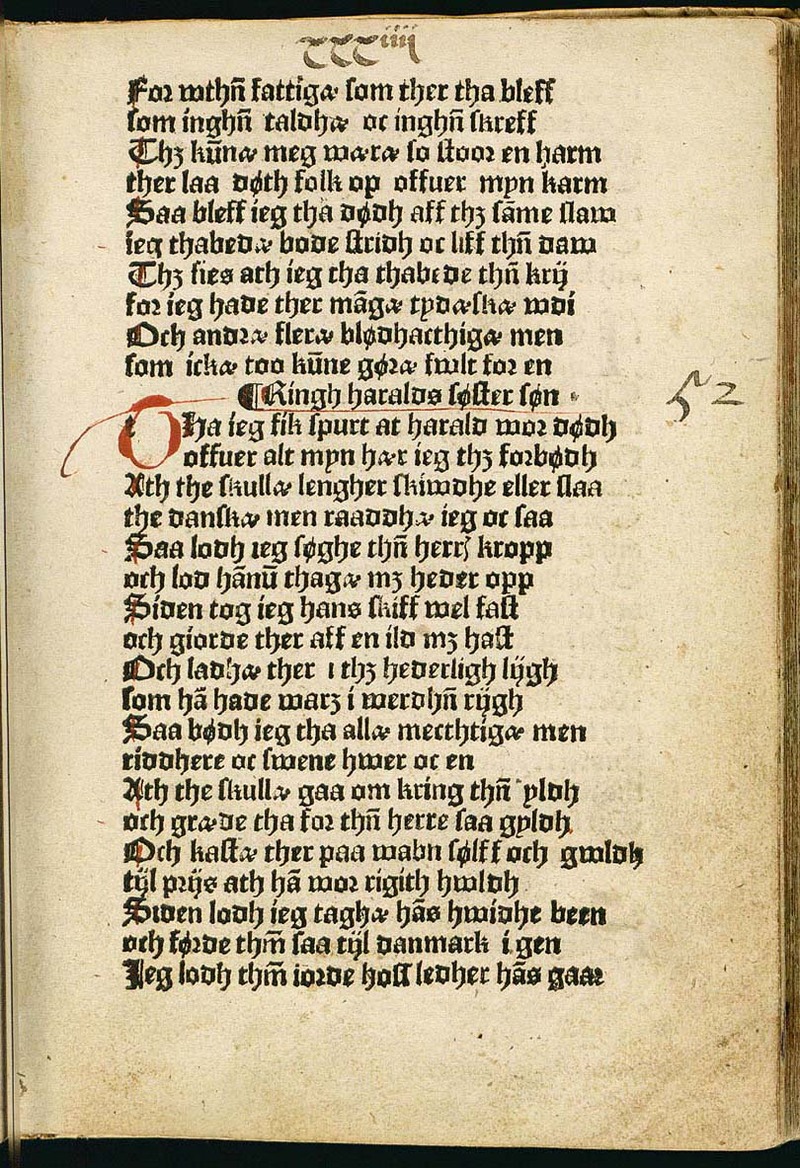 xxxiiij
For wthn̄ fattigæ som ther tha bleff
som inghn̄ taldhæ oc inghn̄ skreff
Thꝫ kūnæ meg wæræ so stoor en harm
ther laa døth folk op offuer myn karm
Saa bleff ieg tha dødh aff thꝫ sāme slaw
ieg thabedæ bode stridh oc liff thn̄ daw
Thꝫ sies ath ieg tha thabede thn̄ krij
for ieg hade ther māgæ tydæskæ wdi
Och andræ fleræ blødhacthigæ men
som ickæ too kūne gøræ fwlt for en
¶Ringh haralds søster søn
tHa ieg fik spurt at harald wor dødh
52
offuer alt myn hær ieg thꝫ forbødh
Ath the skullæ lengher skiwdhe eller slaa
the danskæ men raaddhæ ieg oc saa
Saa lodh ieg søghe thn̄ herrꝭ kropp
och lod hānū thagæ mꝫ heder opp
Siden tog ieg hans skiff wel fast
och giorde ther aff en ild mꝫ hast
Och ladhæ ther i thꝫ hederligh lijgh
som hā hade warꝫ i werdhn̄ rijgh
Saa bødh ieg tha allæ mecthtigæ men
riddhere oc swene hwer oc en
Ath the skullæ gaa om kring thn̄ yldh
och græde tha for thn̄ herre saa gyldh
Och kastæ ther paa wabn sølff och gwldh
tijl prijs ath hā wor rigith hwldh
Siden lodh ieg taghæ hās hwidhe been
och førde thm̄ saa tijl danmark i gen
Jeg lodh thm̄ iorde hoss ledher hās gaar